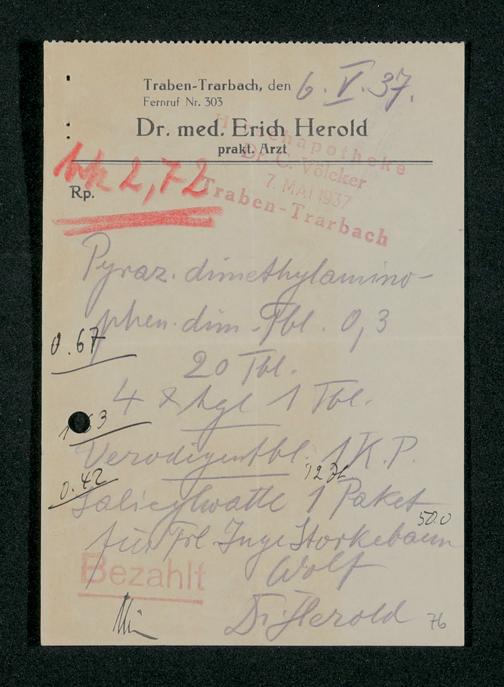 Traben-Trarbach, den 6. V. 37.
Fernruf Nr. 303
Dr. med. Erich Herold
prakt. Arzt
apotheke
Dr. C. Völcker
7. MAI 1937
Traben-Trarbach
2,72
Rp.
Pyraz. dimethylamino-
phen. dim. Tbl. 0,3
0.67
20 Tbl.
4 x tgl 1 Tbl.
Verodigentbl. 1 K.P.
0.42
Salicylwatte 1 Paket
50.0
für Frl. Inge Storkebaum
Wolf
Bezahlt
Dr. Herold
76